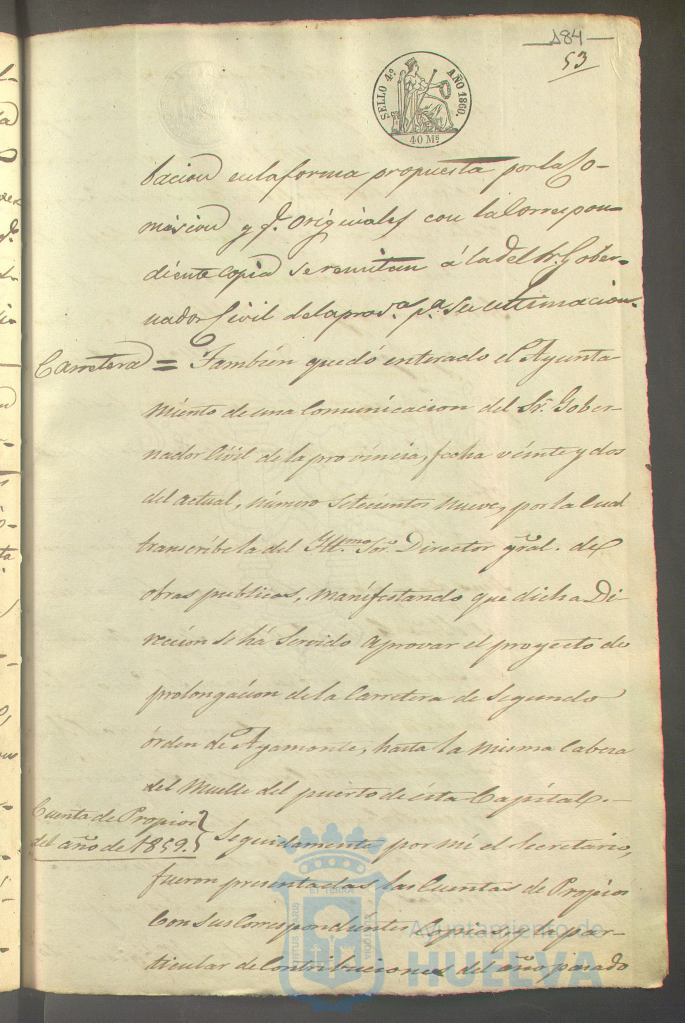 184
53
SELLO 4.º AÑO 1860.
40 Ms
bacion en la forma propuesta por la Co-
mision y q.e originales con la correspon-
diente copia se remitan á la del Sr. Gober-
nador Civil de la prov.a p.a su ultimacion.
Carretera = Tambien quedó enterado el Ayunta
miento de una comunicacion del Sr. Gober-
nador Civil de la provincia, fecha veinte y dos
del actual, número setecientos nueve, por la cual
transcribe la del Ill.mo Sor. Director gral. de
obras publicas, manifestando que dicha Di
reccion se há servido aprovar el proyecto de
prolongacion de la Carretera de segundo
órden de Ayamonte, hasta la misma Cabeza
del Muelle del puerto de ésta Capital.
Cuenta de Propios
del año de 1859. Seguidamente por mi el Secretario,
fueron presentadas las Cuentas de Propios
con sus correspondientes copias, y la par-
ticular de Contribuciones del año pasado
Ayuntamiento de
HUELVA